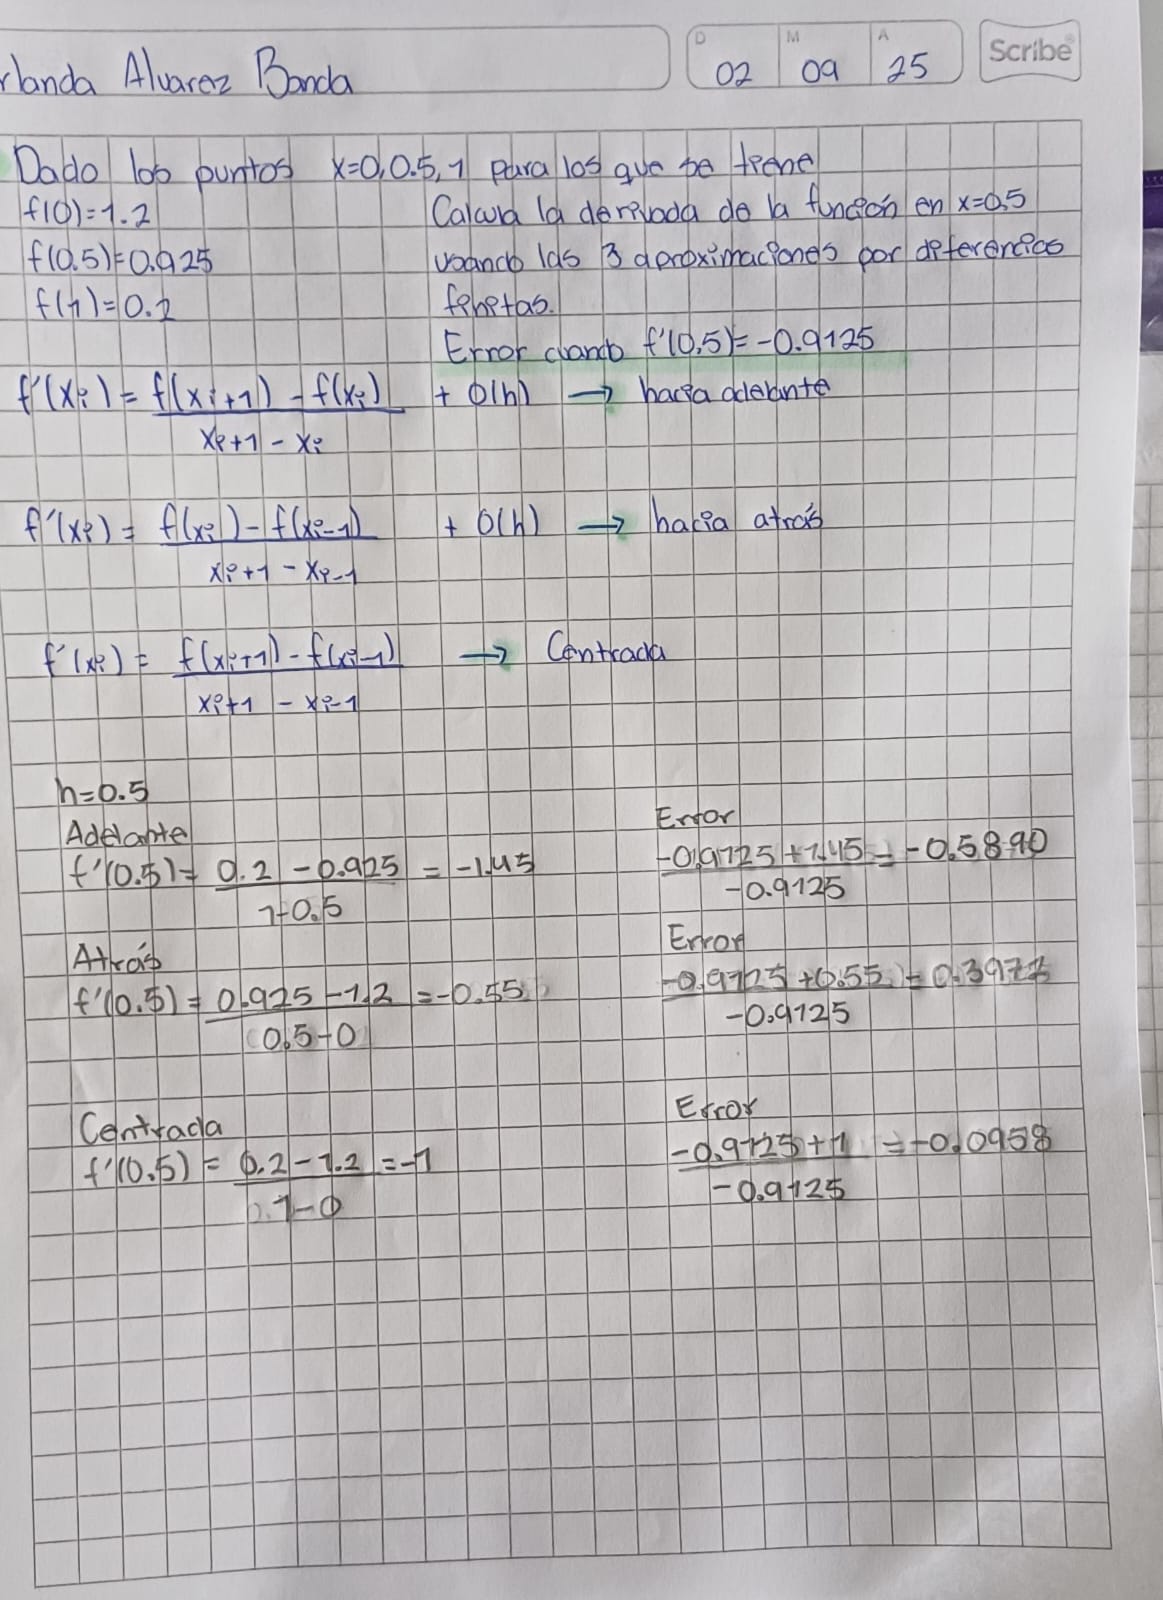 rlanda Alvarez Banda
D M A
02 09 25
Scribe
Dado los puntos x=0,0.5,1 para los que se tiene
f(0)=1.2
f(0.5)=0.925
f(1)=0.2
Calcula la derivada de la función en x=0.5
usando las 3 aproximaciones por diferencias
finitas.
Error cuando f'(0.5)=-0.9125
f'(xi) = f(xi+1) - f(xi) + O(h) → hacia adelante
xi+1 - xi
f'(xi) = f(xi) - f(xi-1) + O(h) → hacia atrás
xi+1 - xi-1
f'(xi) = f(xi+1) - f(xi-1) → Centrada
xi+1 - xi-1
h=0.5
Adelante
f'(0.5) = 0.2 - 0.925 = -1.45
1-0.5
Error
-0.9125 + 1.45 = -0.5890
-0.9125
Atrás
f'(0.5) = 0.925 - 1.2 = -0.55
0.5-0
Error
-0.9125 + 0.55 = 0.3972
-0.9125
Centrada
f'(0.5) = 0.2 - 1.2 = -1
1-0
Error
-0.9125 + 1 = -0.0958
-0.9125